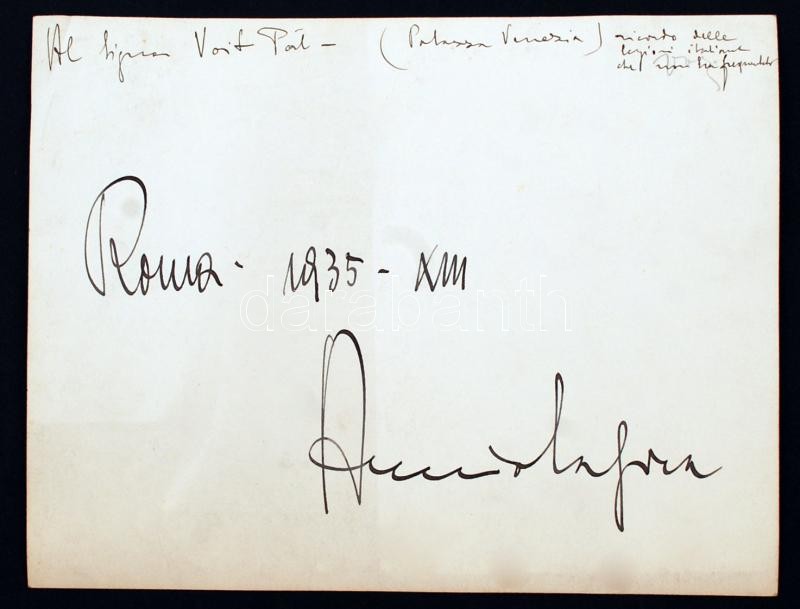 Al Signor Voit Pál – (Palazzo Venezia) ricordo delle
lezioni italiane
che ha frequentato
Roma - 1935 - XIII
darabanth